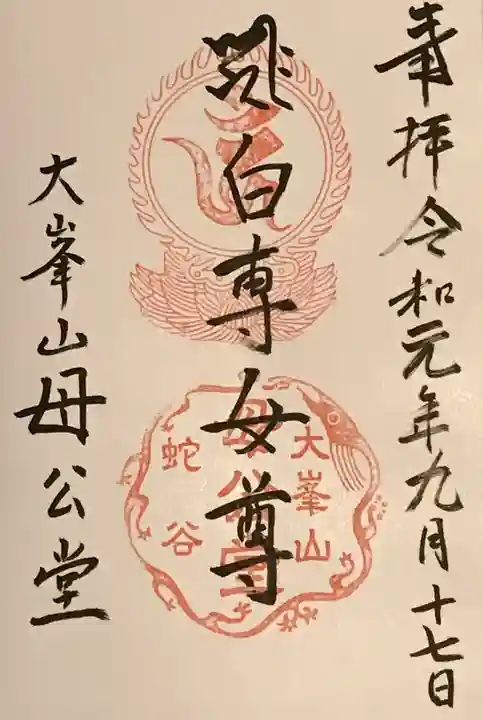 奉拝 令和元年九月十七日
跳白専女尊
大峯山母公堂
大峯山
母公堂
蛇谷